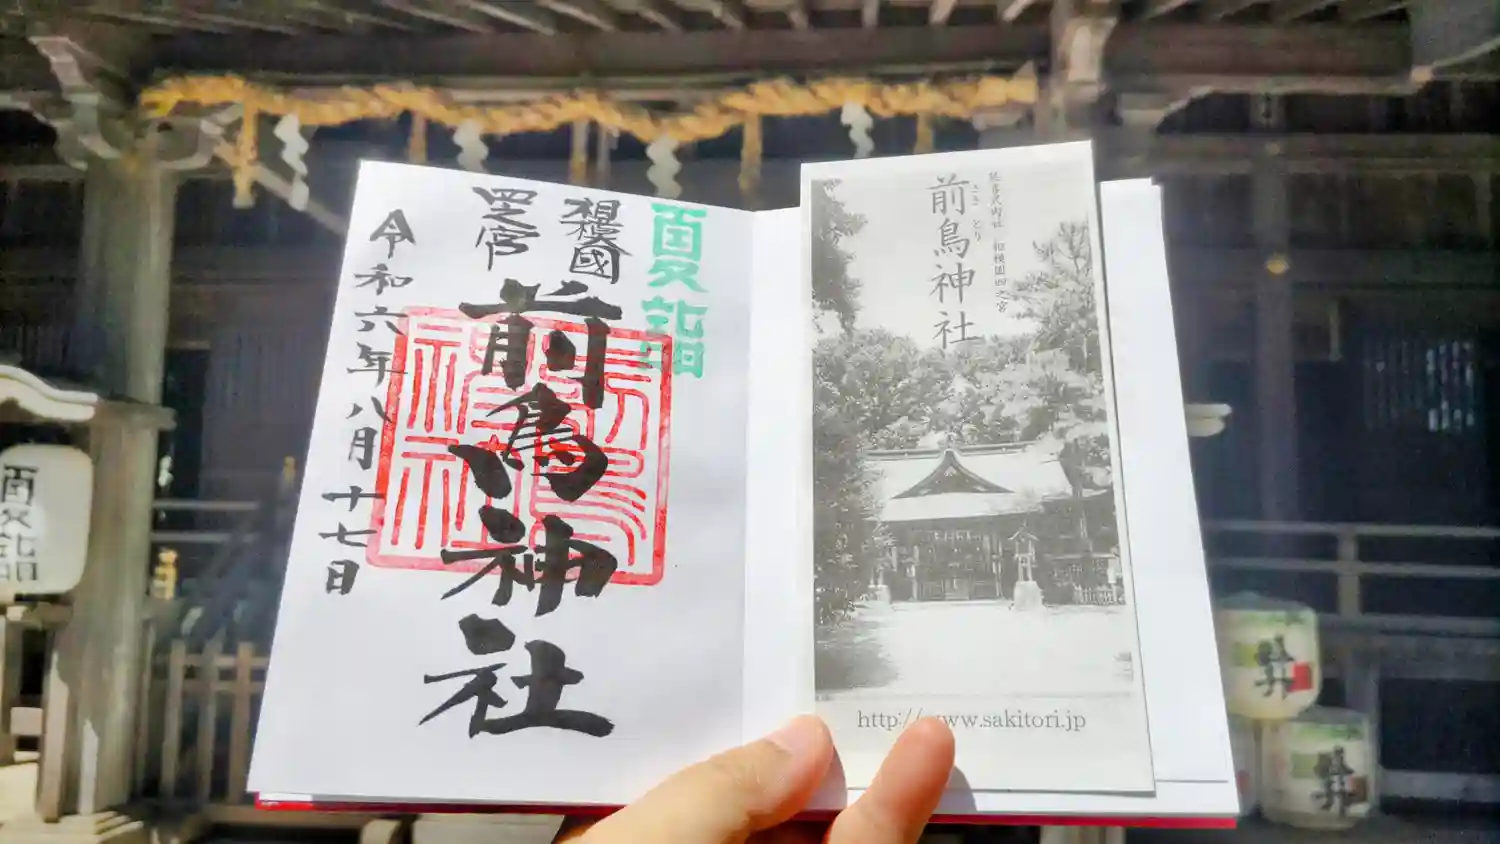 夏詣
相模國
四之宮
前鳥神社
前鳥神社
令和六年八月十七日
延喜式内社 相模国四之宮
前鳥神社
さきとり
http://www.sakitori.jp
夏詣